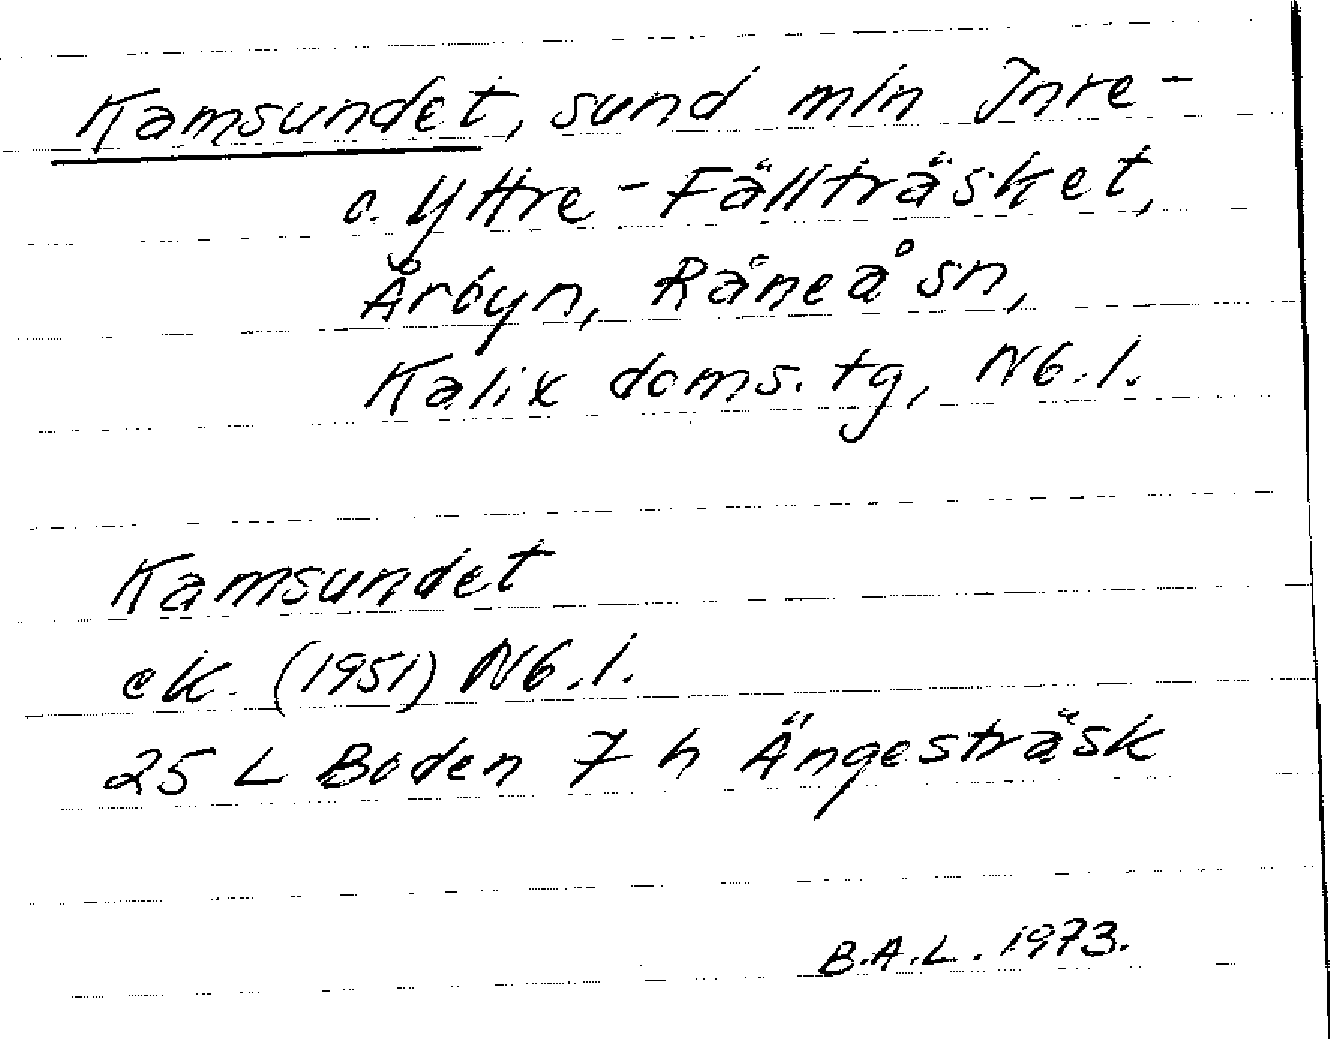 Kamsundet, sund mln Inre-
o. Yttre-Fällträsket,
Årbyn, Råneå sn,
Kalix doms.tg, Nb.l.
Kamsundet
ek. (1951) Nb.l.
25 L Boden 7 h Ängesträsk
B.A.L. 1973.